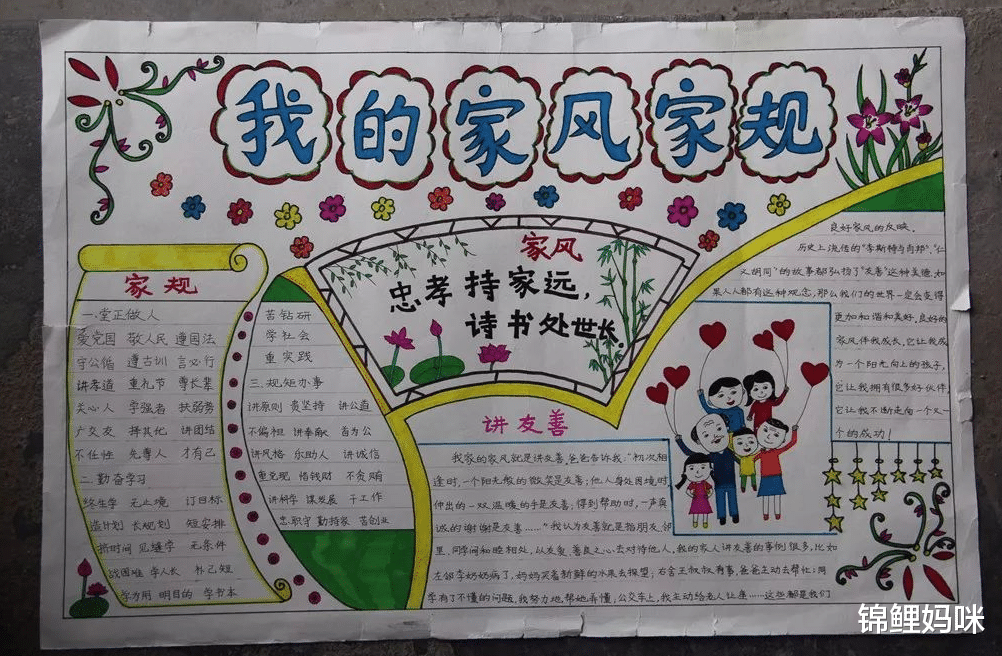 我的家风家规
家规
一.堂正做人
爱党国 敬人民 遵国法
守公德 遵古训 言必行
讲孝道 重礼节 尊长辈
关心人 学强者 扶弱势
广交友 择其化 讲团结
不任性 先尊人 才有己
二.勤奋学习
终生学 无止境 订目标
造计划 长规划 短安排
挤时间 见缝学 无条件
战困难 学人长 补己短
学为用 明目的 学书本
苦钻研
学社会
重实践
三.规矩办事
讲原则 贵坚持 讲公道
不偏袒 讲奉献 首为公
讲风格 乐助人 讲诚信
重兑现 惜钱财 不贪贿
讲科学 谋发展 干工作
忠职守 勤持家 苦创业
家风
忠孝持家远,
诗书处世长.
讲友善
我家的家风就是讲友善,爸爸告诉我:"初次相
逢时,一个阳光般的微笑是友善;他人身处困境时,
伸出的一双温暖的手是友善;得到帮助时,一声真
诚的谢谢是友善……"我认为友善就是指朋友、邻
里、同学间和睦相处,以友爱、善良之心去对待他人,我的家人讲友善的事例很多,比如
左邻李奶奶病了,妈妈买着新鲜的水果去探望;右舍王叔叔有事,爸爸主动去帮忙;同
学有了不懂的问题,我努力地帮她弄懂;公交车上,我主动给老人让座……这些都是我们
良好家风的反映。
历史上流传的"李斯特与肖邦"、"仁
义胡同"的故事都弘扬了"友善"这种美德,如
果人人都有这种观念,那么我们的世界一定会变得
更加和谐和美好。良好的
家风伴我成长,它让我成
为一个阳光向上的孩子,
它让我拥有很多好伙伴,
它让我不断走向一个又一
个的成功!
锦鲤妈咪